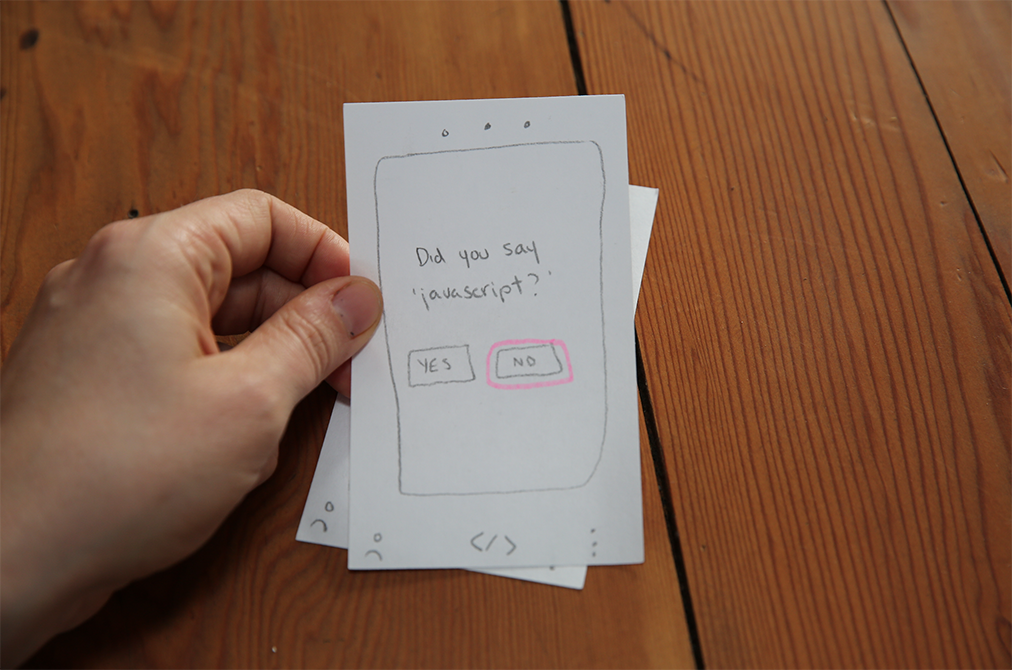 Did you say
'javascript?'
YES NO
</>